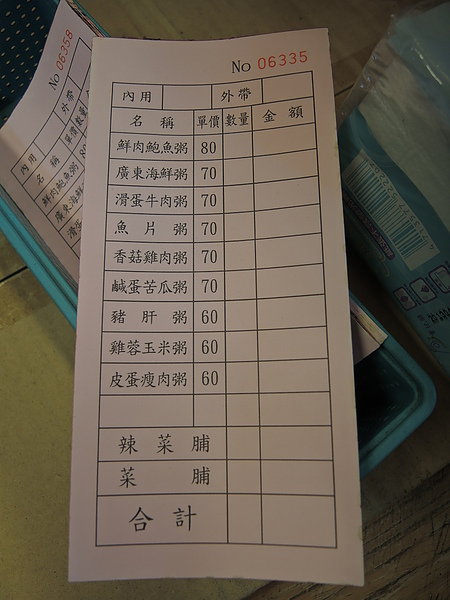 No 06335
內用 外帶
名稱 單價 數量 金額
鮮肉鮑魚粥 80
廣東海鮮粥 70
滑蛋牛肉粥 70
魚片粥 70
香菇雞肉粥 70
鹹蛋苦瓜粥 70
豬肝粥 60
雞蓉玉米粥 60
皮蛋瘦肉粥 60
辣菜脯
菜脯
合計
No 06358
外帶
內用
單價 數量
名稱
鮮肉鮑魚
廣東海鮮
滑蛋